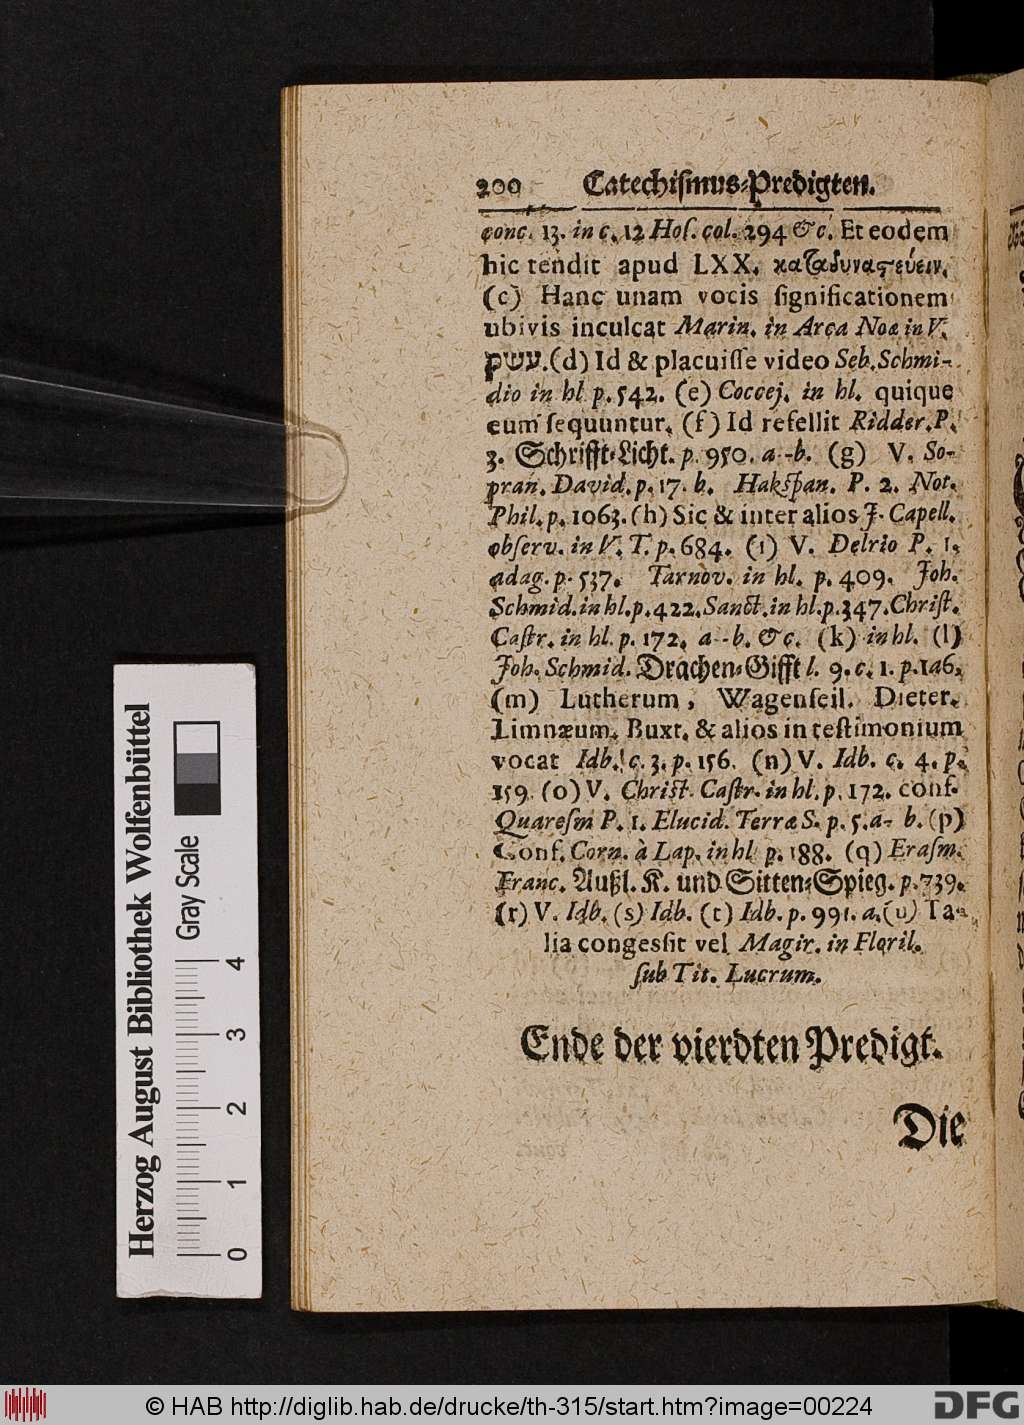 200 Catechiſmus-Predigten.
conc. 13. in c. 12 Hoſ. col. 294 &c. Et eodem
hic tendit apud LXX. καταδυναϛεύειν.
(c) Hanc unam vocis ſignificationem
ubivis inculcat Marin. in Arca Noæ in V.
עשק.(d) Id & placuiſſe video Seb. Schmi-
dio in hl p. 542. (e) Coccej. in hl. quique
eum ſequuntur. (f) Id refellit Ridder. P.
3. Schrifft-Licht. p. 950. a--b. (g) V. So-
pran. David. p. 17. b. Hakſpan. P. 2. Not.
Phil. p. 1063. (h) Sic & inter alios J. Capell.
obſerv. in V. T. p. 684. (i) V. Delrio P. 1.
adag. p. 537. Tarnov. in hl. p. 409. Joh.
Schmid. in hl. p. 422. Sanct. in hl. p. 347. Chriſt.
Caſtr. in hl. p. 172. a--b. &c. (k) in hl. (l)
Joh. Schmid. Drachen-Gifft l. 9. c. 1. p. 146.
(m) Lutherum, Wagenſeil. Dieter.
Limnæum. Buxt. & alios in teſtimonium
vocat Idb. c. 3. p. 156. (n) V. Idb. c. 4. p.
159. (o) V. Chriſt. Caſtr. in hl. p. 172. conf.
Quareſm P. 1. Elucid. Terræ S. p. 5. a- b. (p)
Conf. Corn. à Lap. in hl p. 188. (q) Eraſm.
Franc. Außl. K. und Sitten-Spieg. p. 739.
(r) V. Idb. (s) Idb. (t) Idb. p. 991. a. (u) Ta-
lia congeſſit vel Magir. in Floril.
ſub Tit. Lucrum.
Ende der vierdten Predigt.
Die
Herzog August Bibliothek Wolfenbüttel
Gray Scale
0 1 2 3 4
© HAB http://diglib.hab.de/drucke/th-315/start.htm?image=00224
DFG